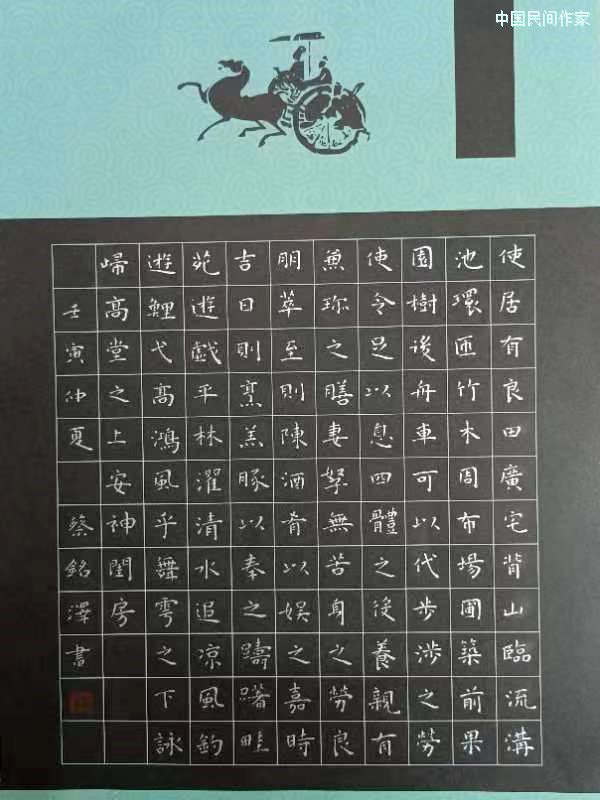 中国民间作家
使居有良田廣宅背山臨流溝
池環匝竹木周布場圃築前果
園樹後舟車可以代步涉之勞
使令足以息四體之役養親有
兼珍之膳妻孥無苦身之勞良
朋萃至則陳酒肴以娛之嘉時
吉日則烹羔豚以奉之躊躇畦
苑遊戲平林濯清水追凉風釣
遊鯉弋高鴻風乎舞雩之下詠
歸高堂之上安神閨房
壬寅仲夏 蔡銘澤書